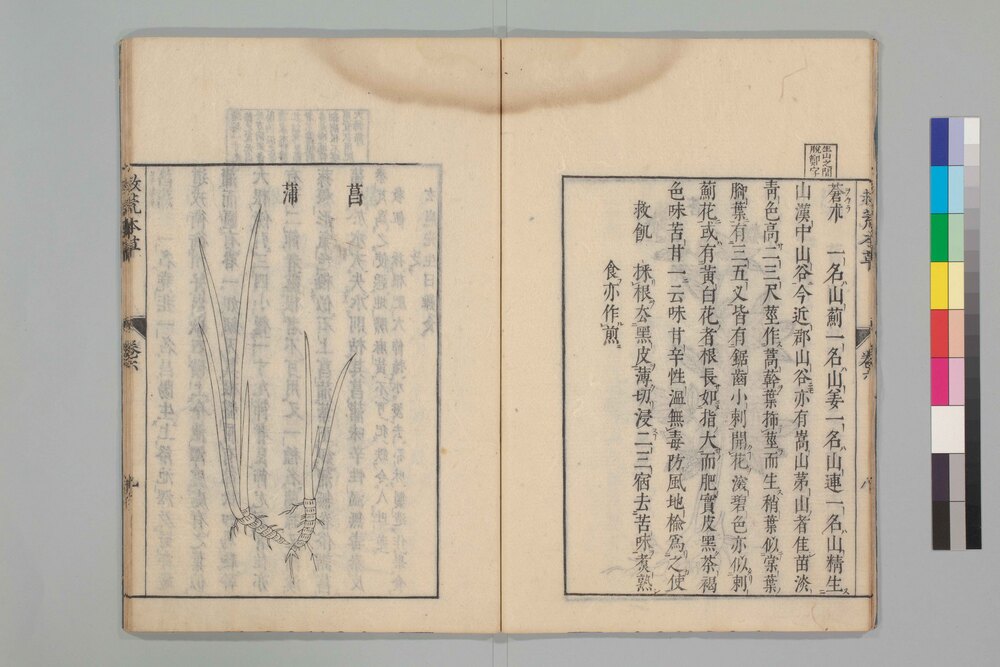 救荒本草
卷六
八
生山之間
脫卿字
蒼朮 一名山薊一名山姜一名山連一名山精生
山漢中山谷今近郡山谷亦有嵩山茅山者佳苗淡
靑色高二三尺莖作蒿幹葉抪莖而生稍葉似棠葉
脚葉有三五叉皆有鋸齒小刺開花深碧色亦似刺
薊花或有黃白花者根長如指大而肥實皮黑茶褐
色味苦甘一云味甘辛性溫無毒防風地楡爲之使
救飢 採根去黑皮薄切浸二三宿去苦味煑熟
食亦作煎
菖
蒲
救荒本草
卷六
九